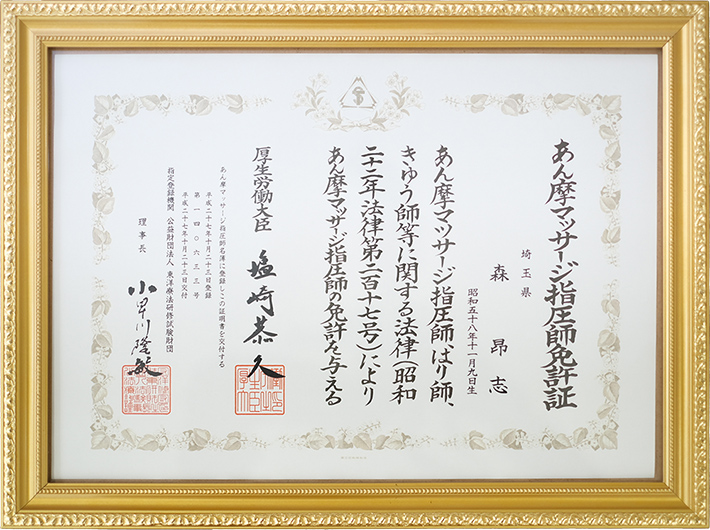 あん摩マッサージ指圧師免許証
埼玉県
森昂志
昭和五十八年十一月九日生
あん摩マッサージ指圧師、はり師、
きゅう師等に関する法律（昭和
二十二年法律第二百十七号）により
あん摩マッサージ指圧師の免許を与える
厚生労働大臣 塩崎恭久
あん摩マッサージ指圧師名簿に登録しこの証明書を交付する
平成二十七年十月二十三日登録
第一四〇六三三号
平成二十七年十月二十三日交付
指定登録機関 公益財団法人 東洋療法研修試験財団
理事長 小早川隆敏